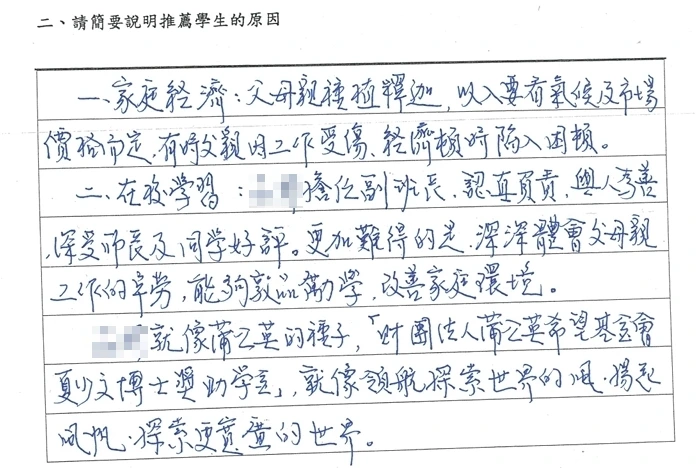 二、請簡要說明推薦學生的原因
一、家庭經濟：父母親種植釋迦，收入要看氣候及市場
價格而定，有時父親因工作受傷、經濟頓時陷入困頓。
二、在校學習：擔任副班長、認真負責，與人為善
，深受師長及同學好評。更加難得的是，深深體會父母親
工作的辛勞，能夠敦品勵學，改善家庭環境。
就像蒲公英的種子，「財團法人蒲公英希望基金會
夏少文博士獎助學金」，就像領航探索世界的風，揚起
風帆，探索更寬廣的世界。